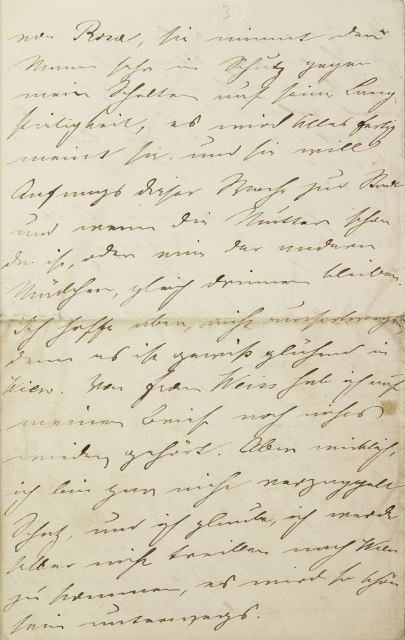 3
von Rosa, sie nimmt den
Mann sehr in Schutz gegen
mein Schelten auf seine Lang-
weiligkeit, es wird Alles fertig
meint sie, und sie will
Anfangs dieser Woche zur Stadt
und wenn die Mutter schon
da ist, oder eins der andern
Mädchen, gleich drinnen bleiben.
Ich hoffe aber, nicht
denn es ist gewiß glühend in
Wien. Von Frau Weiss hab ich auf
meinen Brief noch nichts
wieder gehört. Aber wirklich,
ich bin gar nicht verzappelt
Schatz, und ich glaube, ich werde
selber nicht treiben nach Wien
zu kommen, es wird so schön
sein unterwegs.